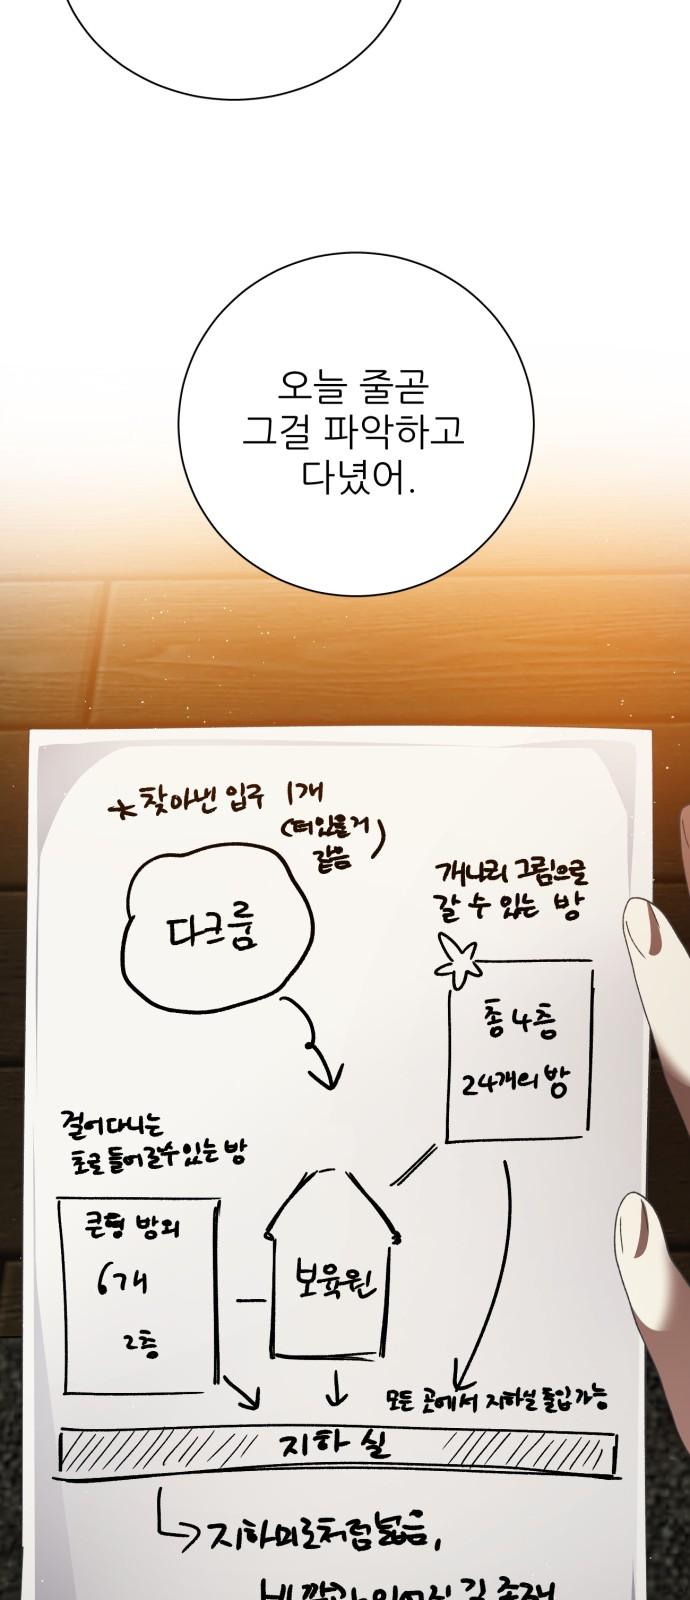 오늘 줄곧
그걸 파악하고
다녔어.
*찾아낸 입구 1개
(더있을거
같음)
다크룸
개나리 그림으로
갈 수 있는 방
총 4층
24개의 방
걸어다니는
초로 들어갈수 있는 방
큰형 방외
6개
2층
보육원
모든 곳에서 지하실 돌입가능
지하실
지하미로처럼 넓음,